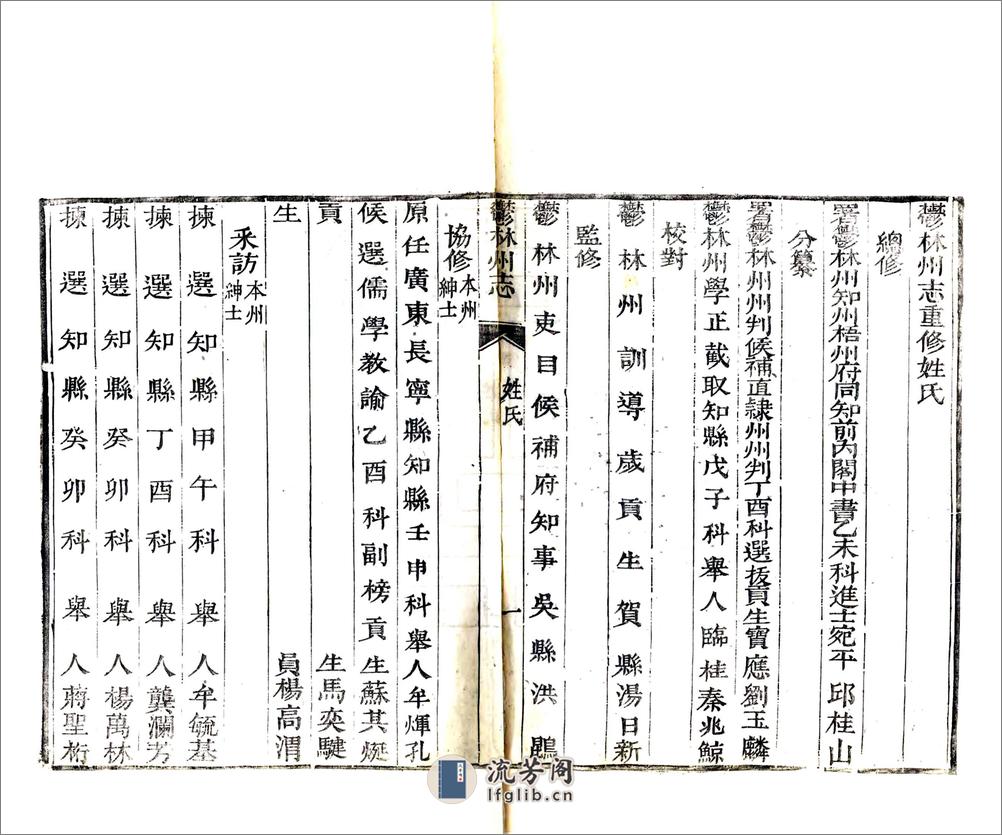 鬱林州志重修姓氏
總修
署鬱林州知州梧州府同知前內閣中書乙未科進士宛平邱桂山
分纂
署鬱林州州判候補直隸州州判丁酉科選拔貢生寶應劉玉麟
鬱林州學正截取知縣戊子科舉人臨桂秦兆鯨
校對
鬱林州訓導歲貢生賀縣湯日新
監修
鬱林州吏目候補府知事吳縣洪鵰
鬱林州志
姓氏
一
協修本州紳士
原任廣東長寧縣知縣壬申科舉人牟煇孔
候選儒學教諭乙酉科副榜貢生蘇其烻
貢生馬奕騝
生員楊高渭
采訪本州紳士
揀選知縣甲午科舉人牟毓基
揀選知縣丁酉科舉人龔瀾芳
揀選知縣癸卯科舉人楊萬林
揀選知縣癸卯科舉人蔣聖桁
流芳阁
lfglib.cn